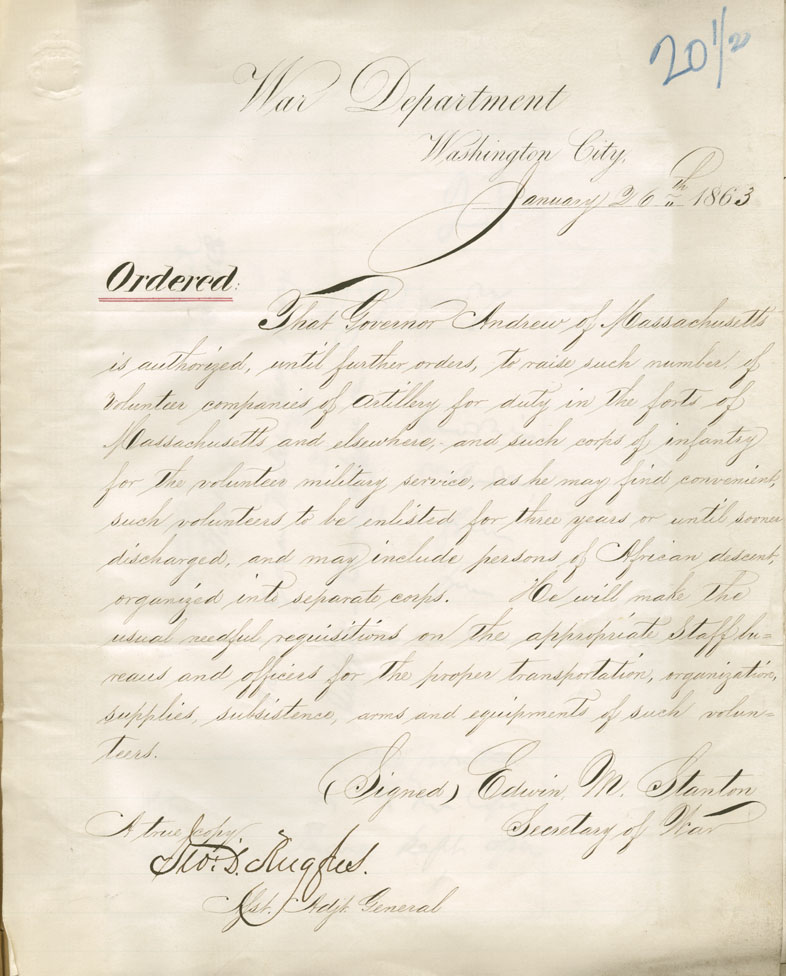 20 1/2
War Department
Washington City,
January 26th 1863
Ordered:
That Governor Andrew of Massachusetts
is authorized, until further orders, to raise such number of
Volunteer companies of Artillery for duty in the forts of
Massachusetts and elsewhere, and such corps of infantry
for the volunteer military service, as he may find convenient,
such volunteers to be enlisted for three years or until sooner
discharged, and may include persons of African descent,
organized into separate corps. He will make the
usual needful requisitions on the appropriate Staff bu=
reaus and officers for the proper transportation, organization,
supplies, subsistence, arms and equipments of such volun=
teers.
(Signed) Edwin M. Stanton
Secretary of War
A true copy
Asst. Adjt. General